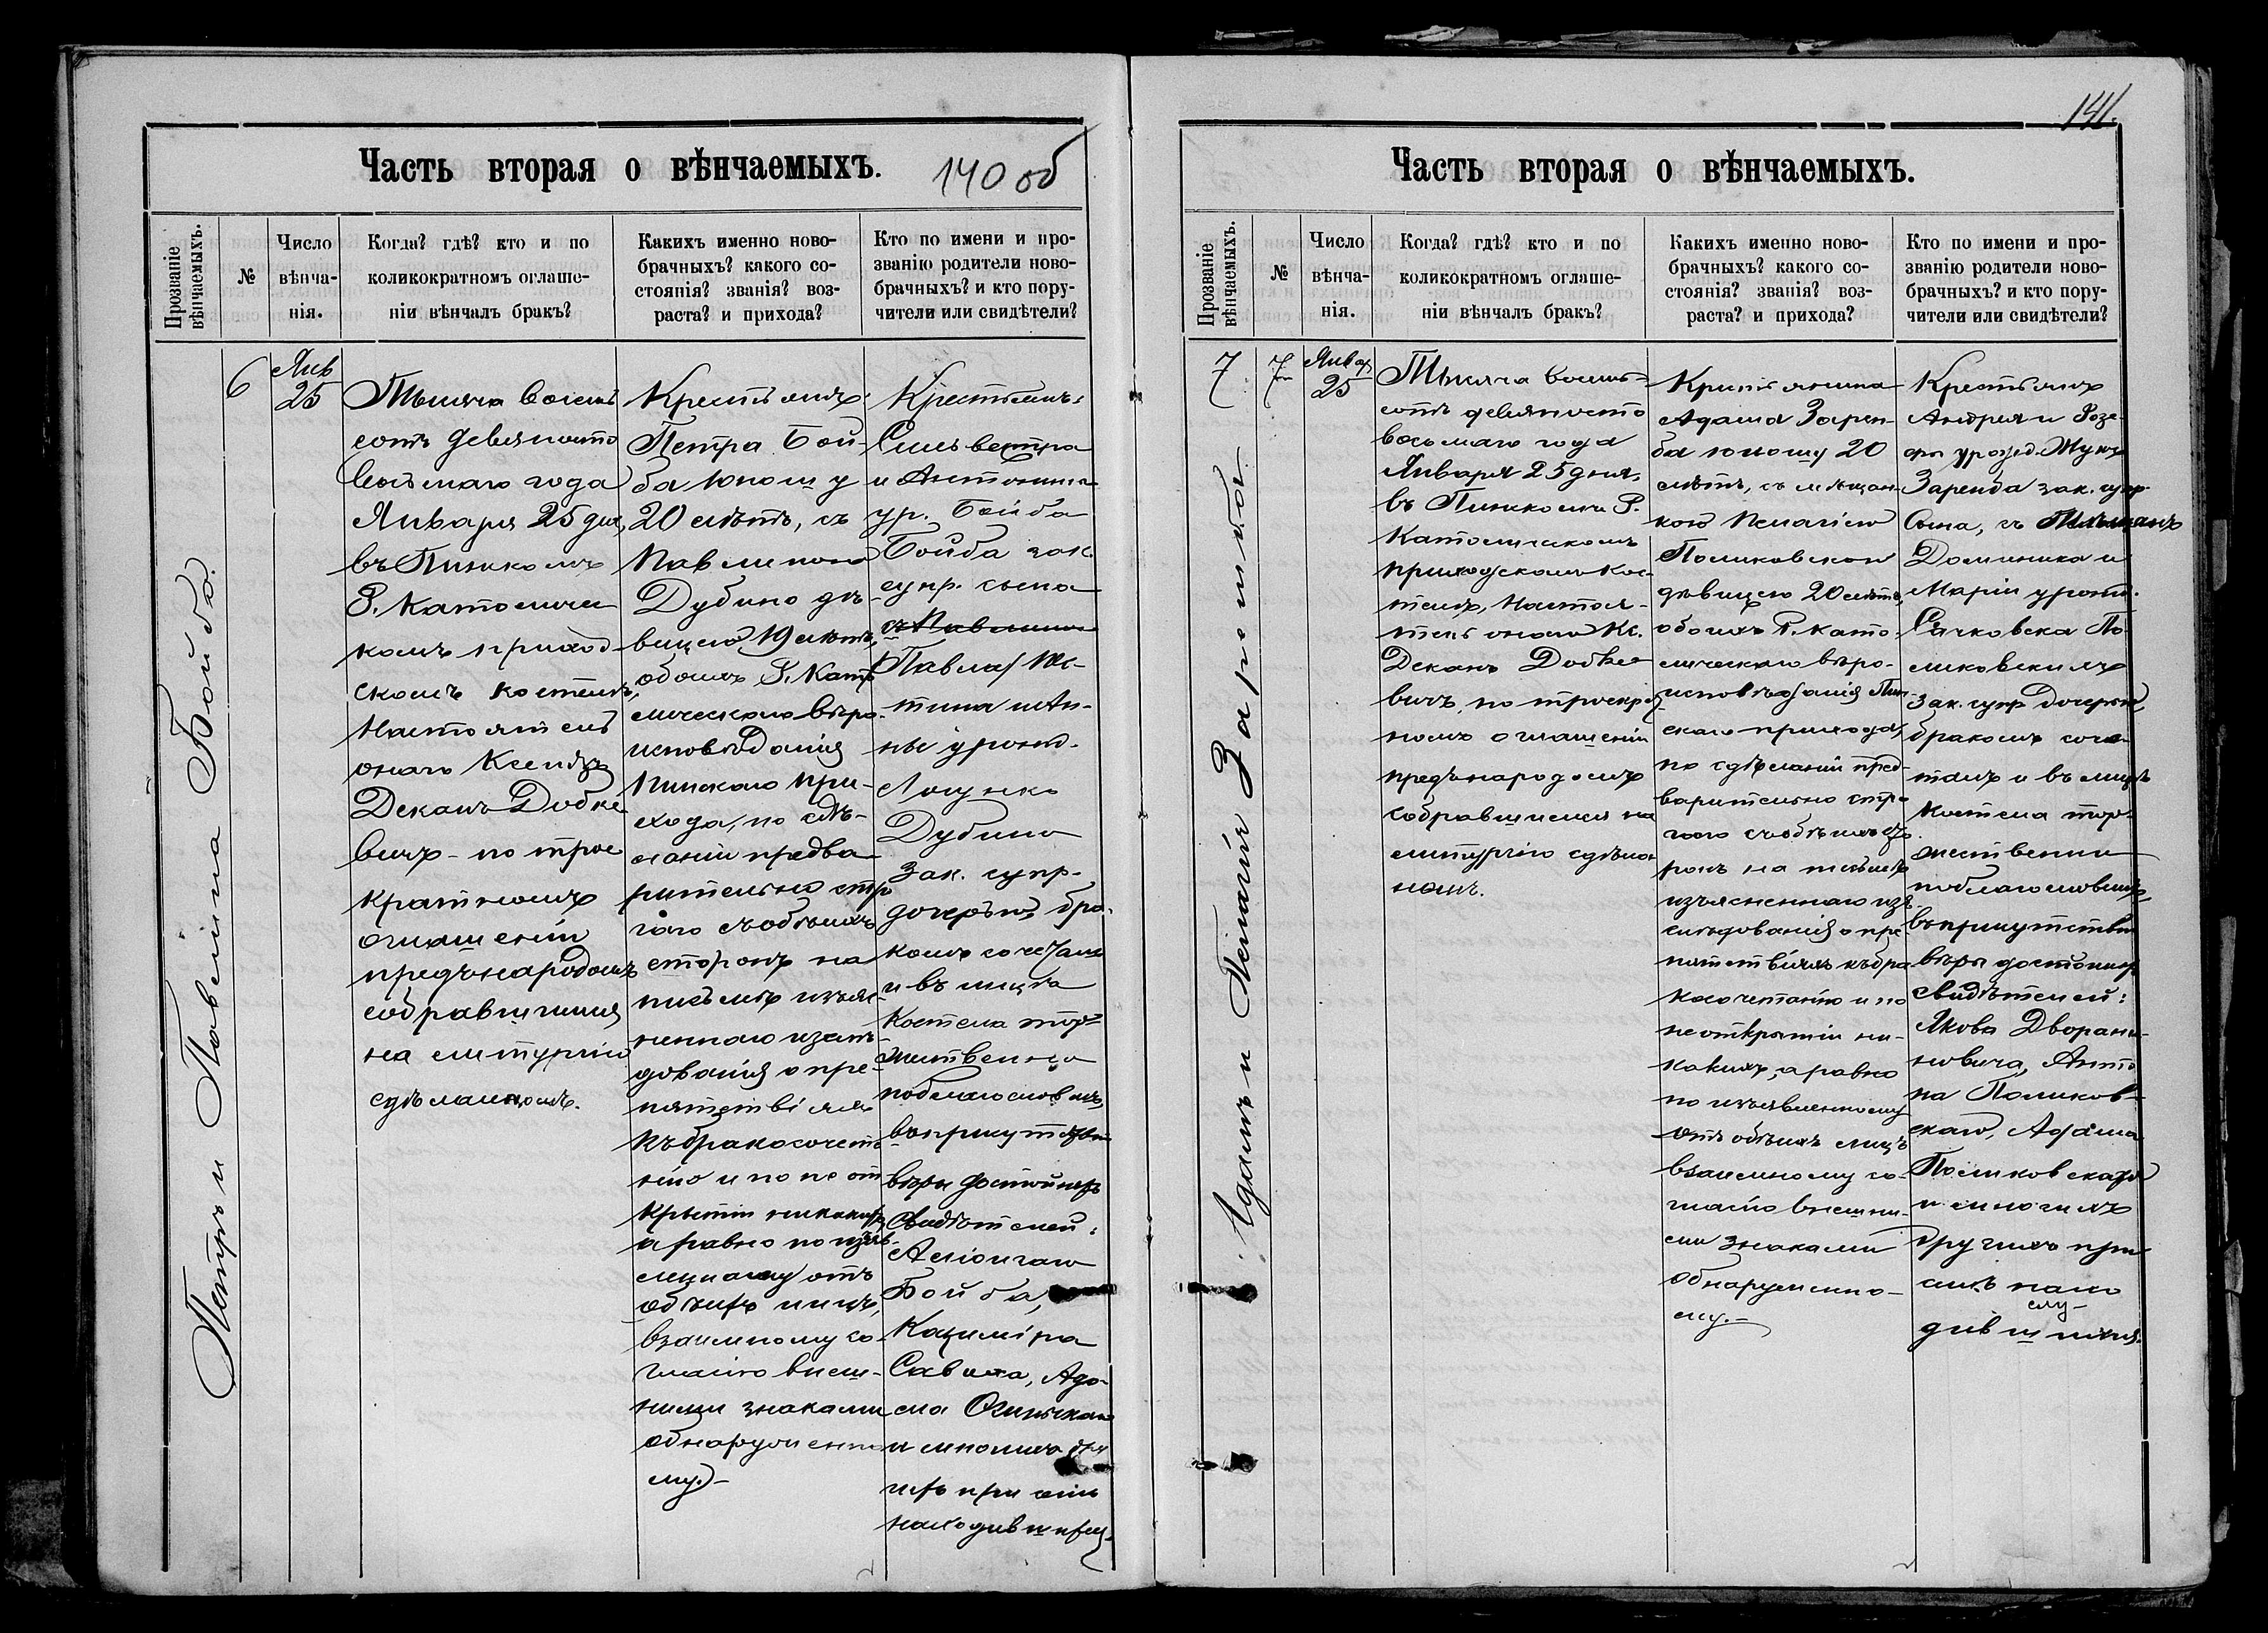 141.
Часть вторая о вѣнчаемыхъ.
140 об
Прозваніе вѣнчаемыхъ.
№
Число
вѣнча-
нія.
Когда? гдѣ? кто и по
коликократномъ оглаше-
ніи вѣнчалъ бракъ?
Какихъ именно ново-
брачныхъ? какого со-
стоянія? званія? воз-
раста? и прихода?
Кто по имени и про-
званію родители ново-
брачныхъ? и кто пору-
чители или свидѣтели?
Петръ и Павлина Бойба.
6
Янв
25
Тысяча восемь
сотъ девяносто
восьмаго года
Января 25 дня,
въ Пинскомъ
Р. Католичес
комъ приход
скомъ костелѣ,
Настоятель
онаго Ксендзъ
Деканъ Добке
вичъ - по трое
кратномъ
оглашеніи
предъ народомъ
собравшимся
на литургію
сдѣланномъ.
Крестьянъ
Петра Бой-
ба юношу
20 лѣтъ, съ
Павлиною
Дубино дѣ-
вицею 19 лѣтъ,
обоихъ Р. Като
лическаго вѣро-
исповѣданія
Пинскаго при-
хода, по сдѣ-
ланіи предва-
рительно стро
гого съ обѣихъ
сторонъ на
письмѣ изъяс-
неннаго изслѣ-
дованія о пре-
пятствіяхъ
къ бракосочета
нію и по не от
крытіи никакихъ,
а равно по изъяв-
ленному отъ
обѣихъ лицъ,
взаимному со-
гласію внеш-
ними знаками
обнаруженно
му.-
Крестьянъ:
Сильвестра
и Антонины
ур. Бойба
Бойба зак.
супр. сына
съ Павлиною
Павла/ Ю-
стина и Ан-
ны урожд.
Логунко
Дубино
зак. супр.
дочерью, бра-
комъ сочеталъ
и въ лицѣ
Костела тор-
жественно
поблагословилъ,
въ присутствіи
вѣры достойныхъ
Свидѣтелей:
Бойба,
Казиміра
Савича, Ада-
ма
и многихъ дру
гихъ при семъ
находившихся.
Часть вторая о вѣнчаемыхъ.
Прозваніе вѣнчаемыхъ.
№
Число
вѣнча-
нія.
Когда? гдѣ? кто и по
коликократномъ оглаше-
ніи вѣнчалъ бракъ?
Какихъ именно ново-
брачныхъ? какого со-
стоянія? званія? воз-
раста? и прихода?
Кто по имени и про-
званію родители ново-
брачныхъ? и кто пору-
чители или свидѣтели?
Адамъ и Пелагія Зарембо.
7
7
Январ
25
Тысяча восемь-
сотъ девяносто
восьмаго года
Января 25 дня,
въ Пинскомъ Р.
Католическомъ
приходскомъ Кос-
телѣ, Настоя-
тель онаго Кс.
Деканъ Добке
вичъ, по троекрат
номъ оглашеніи
предъ народомъ
собравшимся на
литургію сдѣлан
номъ.
Крестьянина
Адама Зарем-
ба юношу 20
лѣтъ, съ мѣщан-
кою Пелагіею
Поликовскою
дѣвицею 20 лѣтъ,
обоихъ Р. Като-
лическаго вѣро-
исповѣданія Пин-
скаго прихода,
по сдѣланіи пред-
варительно стро
гого съ обѣихъ сто
ронъ на письмѣ
изъясненнаго изс-
лѣдованія о пре
пятствіяхъ къ бра
косочетанію и по
не открытіи ни-
какихъ, а равно
по изъявленному
отъ обѣихъ лицъ
взаимному со-
гласію внешни-
ми знаками
обнаруженно-
му.-
Крестьянъ
Андрея и Розе-
фы урожд. Жукъ
Заремба зак. супр.
сына, съ Мѣщанъ
Доминика и
Маріи урожд.
Сачковска По-
ликовскихъ
зак. супр. дочерью,
бракомъ соче-
талъ и въ лицѣ
Костела тор-
жественно
поблагословилъ,
въ присутствіи
вѣры достойныхъ
Свидѣтелей:
Якова Дворани-
новича, Анто
на Поликов-
скаго, Адама
Поликовскаго
и многихъ
другихъ при
семъ нахо
дившихся.